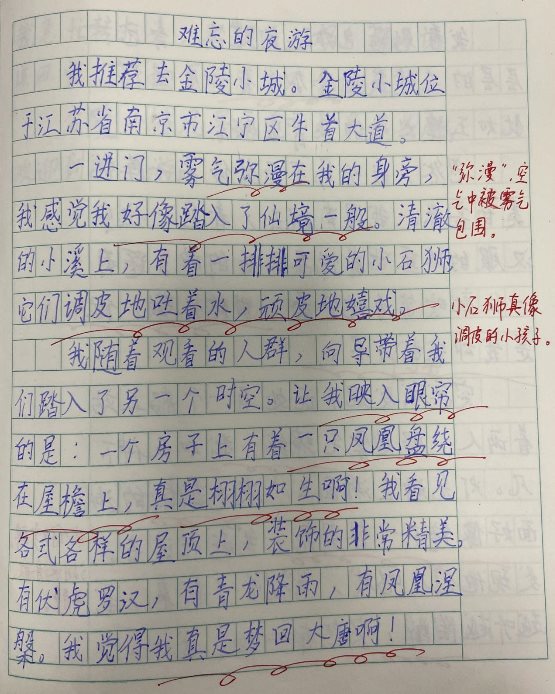 难忘的夜游
我推荐去金陵小城。金陵小城位
于江苏省南京市江宁区牛首大道。
一进门，雾气弥漫在我的身旁，
我感觉我好像踏入了仙境一般。清澈
的小溪上，有着一排排可爱的小石狮
它们调皮地吐着水，顽皮地嬉戏。
我随着观看的人群，向导带着我
们踏入了另一个时空。让我映入眼帘
的是：一个房子上有着一只凤凰盘绕
在屋檐上，真是栩栩如生啊！我看见
各式各样的屋顶上，装饰的非常精美。
有伏虎罗汉，有青龙降雨，有凤凰涅
槃。我觉得我真是梦回大唐啊！
“弥漫”，空
气中被雾气
包围。
小石狮真像
调皮的小孩子。